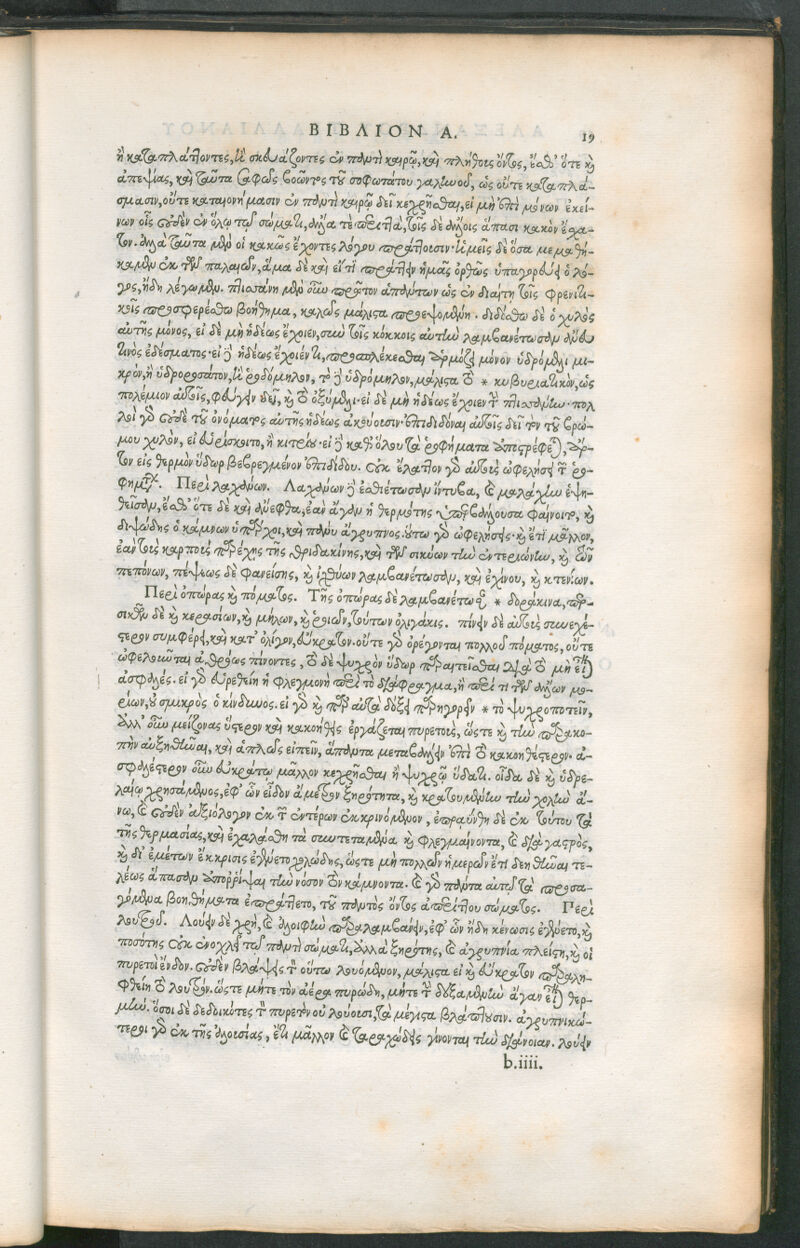 ΒΙΒΛΙΟΝ Α. 19
ἢ καταπλάττοντες, ἢ σκευάζοντες ἐν παντὶ καιρῷ, καὶ πλήθους ὄντος, ἔσθ' ὅτε καὶ
ἀπεψίας, καὶ ταῦτα σαφῶς βοῶντος τοῦ σοφωτάτου γαλίωοδ, ὡς οὔτε καταπλά-
σμασιν, οὔτε καταιονήμασιν ἐν παντὶ καιρῷ δεῖ κεχρῆσθαι, εἰ μὴ ἐπὶ μόνων ἐκεί-
νων οἷς οὐδὲν ἐν ὅλῳ τῷ σώματι, ἀλλὰ τὲ περιττὰ, τοῖς δὲ ἄλλοις ἅπασι κακὸν ἔσχα-
τον. ἀλλὰ ταῦτα μὲν οἱ κακῶς ἔχοντες λόγου πράττουσιν· ἡμεῖς δὲ ὅσα μεμαθή-
καμεν ἐκ τῶν παλαιῶν, ἅμα δὲ καὶ εἴ τι πράττειν ἡμᾶς ὀρθῶς ὑπαγορεύει ὁ λό-
γος, ἤδη λέγωμεν. πτισάνη μὲν οὖν πρῶτον ἁπάντων ὡς ἐν διαίτῃ τοῖς φρενιτι-
κοῖς προσφερέσθω βοήθημα, καλῶς μάλιστα προεψομένη. διδόσθω δὲ ὁ χυλὸς
αὐτῆς μόνος, εἰ δὲ μὴ ἡδέως ἔχοιεν, σὺν τοῖς κόκκοις αὐτὴν λαμβανέτωσαν ἄνευ
τινὸς ἐδέσματος· εἰ δὲ ἡδέως ἔχοιέν τι, προσπλέκεσθαι ἁρμόζει μόνον ὑδρόμελι μι-
κρὸν, ἢ ὑδροροσάτον, ἢ ῥοδόμηλον, τὸ δὲ ὑδρόμηλον, μάλιστα τὸ * κυβυρατικὸν, ὡς
πολέμιον αὐτοῖς, φεύγειν δεῖ, καὶ τὸ ὀξύμελι· εἰ δὲ μὴ ἡδέως ἔχοιεν τὴν πτισάνην· πολ
λοὶ γὰρ οὐδὲ τοῦ ὀνόματος αὐτῆς ἡδέως ἀκούουσιν· ἐπιδιδόναι αὐτοῖς δεῖ τὸν τοῦ βρώ-
μου χυλὸν, εἰ εὑρίσκοιτο, ἢ κιτρίου· εἰ δὲ καθ' ὅλου τὰ ῥοφήματα ἀποστρέφεται, ἄρ-
τον εἰς θερμὸν ὕδωρ βεβρεγμένον ἐπιδίδου. οὐκ ἔλαττον γὰρ αὐτοὺς ὠφελήσει τῶν ῥο-
φημάτων. Περὶ λαχάνων. Λαχάνων δὲ ἐσθιέτωσαν ἴντυβα, καὶ μαλάχην ἑψη-
θεῖσαν, ἔσθ' ὅτε δὲ καὶ ἄνεφθα, ἐὰν ἄγαν ἡ θερμότης ὑπερβάλλουσα φαίνοιτο, καὶ
διψώδης ὁ κάμνων ὑπάρχοι, καὶ πάνυ ἄγρυπνος. οὕτω γὰρ ὠφελήσεις· καὶ ἔτι μᾶλλον,
ἐὰν τοὺς καρποὺς παρέχῃς τῆς θριδακίνης, καὶ τῶν σικύων τὴν ἐντεριώνην, καὶ τῶν
πεπόνων, πέψεως δὲ φανείσης, καὶ ἰχθύων λαμβανέτωσαν, καὶ ἐχίνου, καὶ κτενίων.
Περὶ ὀπώρας καὶ πόματος. Τῆς ὀπώρας δὲ λαμβανέτωσαν * δοράκινα, περ-
σικῶν δὲ καὶ κερασίων, καὶ μήλων, καὶ ῥοιῶν, τούτων ὀλιγάκις. πίνειν δὲ αὐτοῖς συνεχέ-
στερον συμφέρει, καὶ κατ' ὀλίγον, εὔκρατον. οὔτε γὰρ ὀρέγονται πολλοῦ πόματος, οὔτε
ὠφελοῦνται ἀθρόως πίνοντες, τὸ δὲ ψυχρὸν ὕδωρ παραιτεῖσθαι διὰ τὸ μὴ εἶναι
ἀσφαλές. εἰ γὰρ εὑρεθείη ἡ φλεγμονὴ περὶ τὸ διάφραγμα, ἢ περί τι τῶν ἄλλων μο-
ρίων, οὐ σμικρὸς ὁ κίνδυνος. εἰ γὰρ καὶ παρ' αὐτὰ δόξει παρηγορεῖν * τὸ ψυχροποτεῖν,
ἀλλ' οὖν μείζονας ὕστερον καὶ κακοήθεις ἐργάζεται πυρετοὺς, ὥστε καὶ τὴν παρακο-
πὴν αὐξηθῆναι, καὶ ἁπλῶς εἰπεῖν, ἅπαντα μεταβάλλειν ἐπὶ τὸ κακοηθέστερον. ἀ-
σφαλέστερον οὖν εὐκράτῳ μᾶλλον κεχρῆσθαι ἢ ψυχρῷ ὕδατι. οἶδα δὲ καὶ ὑδρε-
λαίῳ χρησάμενος, ἐφ' ὧν εἶδον ἄμετρον ξηρότητα, καὶ κρατουμένην τὴν χολὴν ἄ-
νω, καὶ οὐδὲν ἀξιόλογον ἐκ τῶν ἐντέρων ἐκκρινόμενον, ἐπραΰνθη δὲ ἐκ τούτου τὰ
τῆς θερμασίας, καὶ ἐχαλάσθη τὰ συντεταμένα καὶ φλεγμαίνοντα, καὶ διὰ γαστρὸς,
καὶ δι' ἐμέτων ἔκκρισις ἐγένετο χολώδης, ὥστε μὴ πολλῶν ἡμερῶν ἔτι δεηθῆναι τε-
λέως ἅπασαν ἀπορρίψαι τὴν νόσον τὸν κάμνοντα. καὶ γὰρ πάντα αὐτῷ τὰ προσα-
γόμενα βοηθήματα ἐπράττετο, τοῦ παντὸς ὄντος ἀπερίττου σώματος. Περὶ
λουτροῦ. Λούειν δὲ χρὴ, καὶ ἀλοιφὴν παραλαμβάνειν, ἐφ' ὧν ἤδη κένωσις ἐγένετο, καὶ
ποσότης οὐκ ἐνοχλεῖ τῷ παντὶ σώματι, ἀλλὰ ξηρότης, καὶ ἀγρυπνία πλείστη, καὶ οἱ
πυρετοὶ ἔνδον. οὐδὲν βλάψεις τὸν οὕτω λουόμενον, μάλιστα εἰ καὶ εὔκρατον παραλη-
φθείη τὸ λουτρόν. ὥστε μήτε τὸν ἀέρα πυρώδη, μήτε τὴν δεξαμενὴν ἄγαν εἶναι θερ-
μήν. ὅσοι δὲ δεδοικότες τὸν πυρετὸν οὐ λούουσι, τὰ μέγιστα βλάπτουσιν. ἀγρυπνικώ-
τεροι γὰρ ἐκ τῆς ἀλουσίας, ἔτι μᾶλλον καὶ ταραχώδεις γίνονται τὴν διάνοιαν. λούειν
b.iiii.